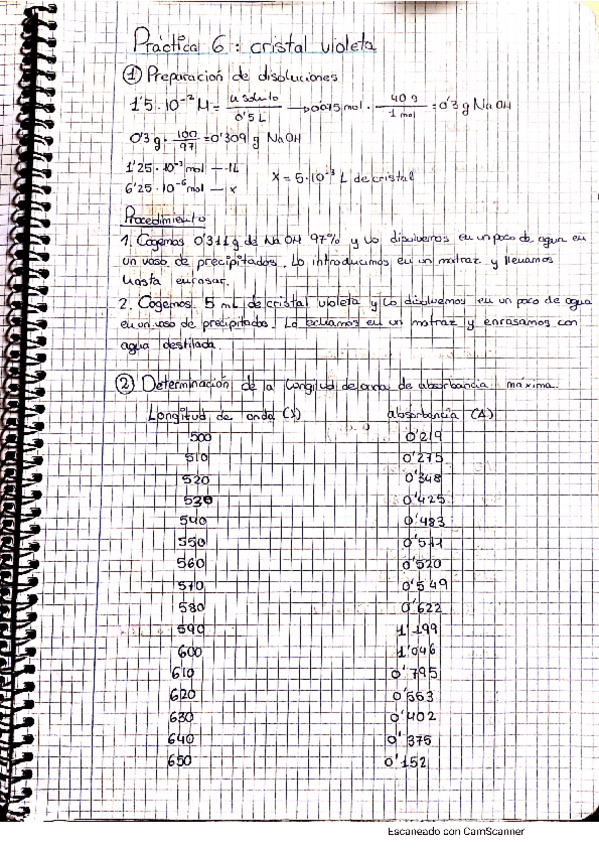 Práctica 6: cristal violeta
① Preparación de disoluciones
1'5 · 10⁻² M = n soluto / 0'5 L → 0'0075 mol · 40 g / 1 mol = 0'3 g NaOH
0'3 g · 100 / 97 = 0'309 g NaOH
1'25 · 10⁻³ mol — 1L
6'25 · 10⁻⁶ mol — x x = 5·10⁻³ L de cristal
Procedimiento
1. Cogemos 0'311g de NaOH 97% y lo disolvemos en un poco de agua en
un vaso de precipitados. Lo introducimos en un matraz y llevamos
hasta enrasar.
2. Cogemos 5 mL de cristal violeta y lo disolvemos en un poco de agua
en un vaso de precipitados. Lo echamos en un matraz y enrasamos con
agua destilada.
② Determinación de la longitud de onda de absorbancia máxima.
Longitud de onda (λ) absorbancia (A)
500 0'219
510 0'275
520 0'348
530 0'425
540 0'483
550 0'511
560 0'520
570 0'549
580 0'622
590 1'199
600 1'046
610 0'795
620 0'563
630 0'402
640 0'375
650 0'152
Escaneado con CamScanner